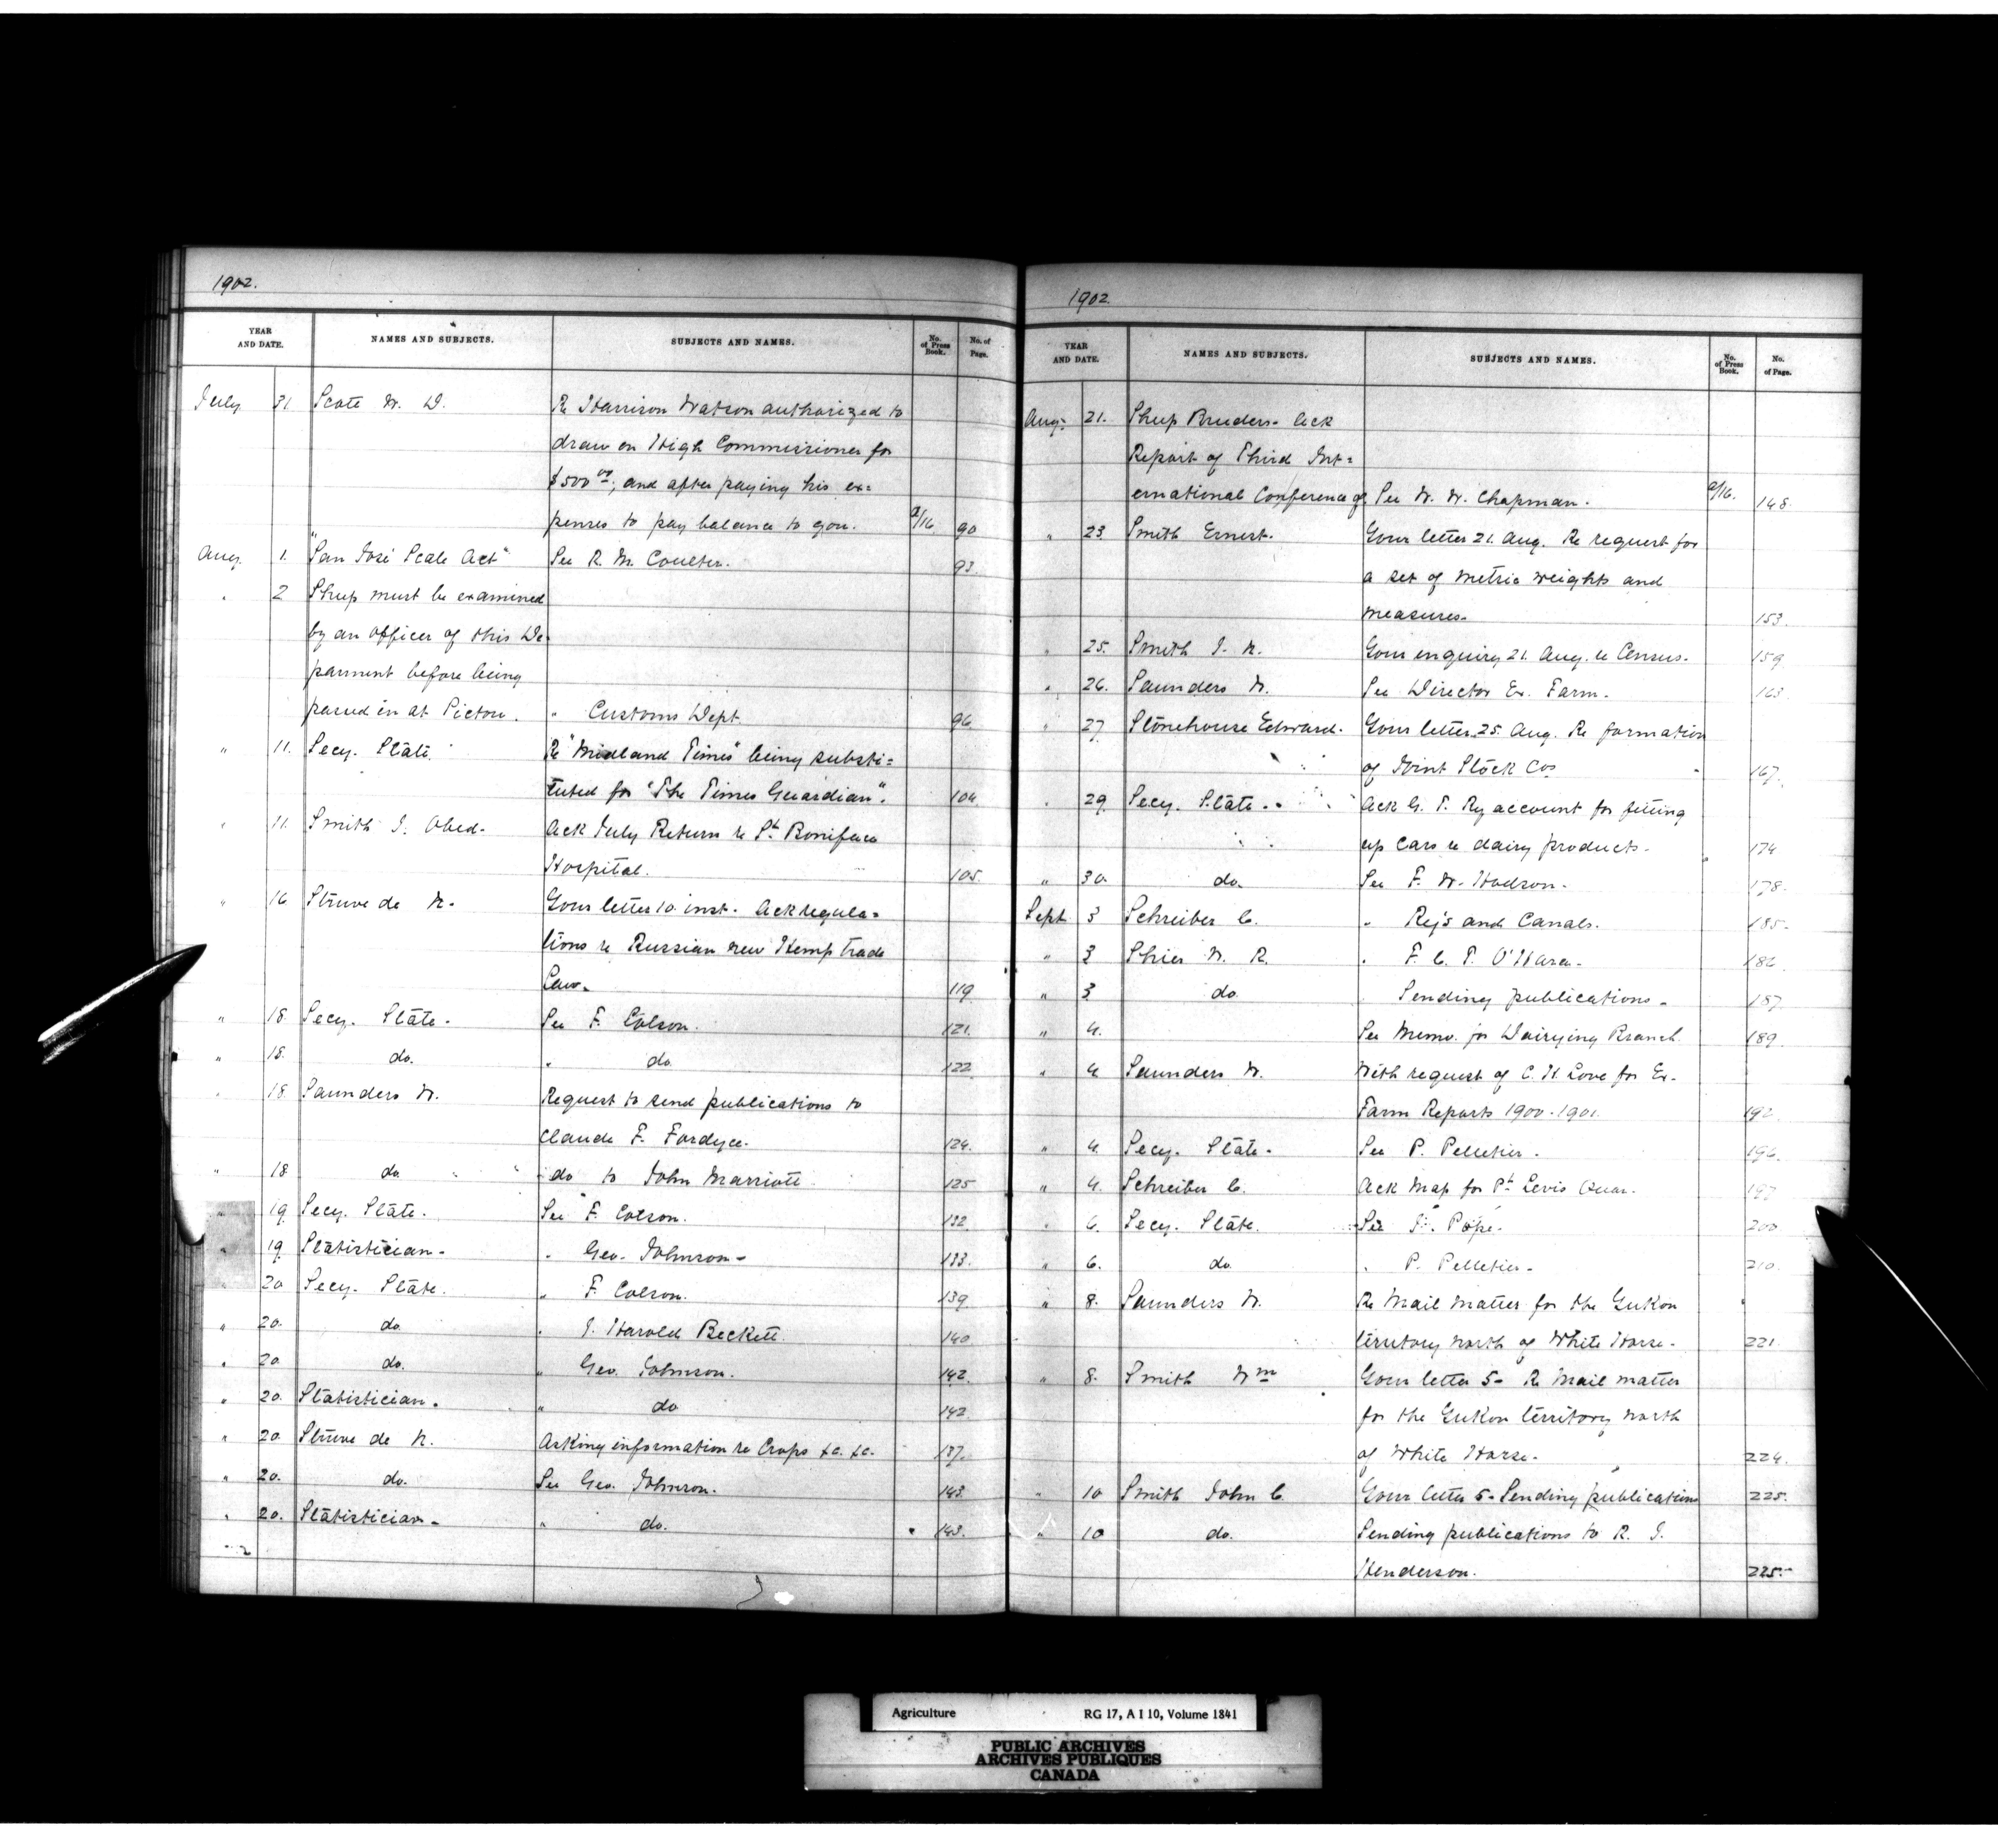 1902.
YEAR AND DATE. NAMES AND SUBJECTS. SUBJECTS AND NAMES. No. of Press Book. No. of Page.
July 31. Scott W. D. Re Harrison Watson authorized to
draw on High Commissioner for
$500 00/; and after paying his ex=
penses to pay balance to you. 2/16. 90
Aug. 1. "San José Scale Act" See R. M. Coulter. 93.
" 2 Sheep must be examined
by an officer of this De
parment before being
passed in at Pictou. " Customs Dept. 96
" 11. Secy. State. Re "Midland Times" being substi=
tuted for "The Times Guardian". 104
" 11. Smith J. Obed. Ack July Return re St. Boniface
Hospital. 105.
" 16 Struve de N. Your letter 10 inst. Ack regula=
tions re Russian new Hemp trade
Law. 119
" 18. Secy. State. See F. Colson. 121.
" 18. do. " do 122
" 18 Saunders W. Request to send publications to
Claude F. Fordyce. 124.
" 18 do. do to John Marriott 125
" 19 Secy. State. See F. Colson. 132
" 19 Statistician. " Geo. Johnson. 133.
" 20 Secy. State. " F. Colson. 139
" 20. do. " J. Harold Beckett. 140
" 20. do. " Geo. Johnson. 142.
" 20. Statistician. " do 142
" 20. Struve de N. Asking information re Crops &c. &c. 137.
" 20. do. See Geo. Johnson. 143.
" 20. Statistician. " do. 143.
1902.
YEAR AND DATE. NAMES AND SUBJECTS. SUBJECTS AND NAMES. No. of Press Book. No. of Page.
Aug. 21. Sheep Breeders. Ack
Report of Third Int=
ernational Conference of See W. W. Chapman. 2/16. 148.
" 23 Smith Ernest. Your letter 21. Aug. Re request for
a set of metric weights and
measures. 153.
" 25. Smith J. N. Your enquiry 21. Aug. re Census. 159
" 26. Saunders W. See Director Ex. Farm. 163.
" 27 Stonehouse Edward. Your letter 25. Aug. Re formation
of Joint Stock Cos 167.
" 29 Secy. State. Ack G. T. Ry account for fitting
up Cars re dairy products. 174
" 30. do. See F. W. Hodson. 178.
Sept 3 Schreiber C. " Rys and Canals. 185.
" 3 Shier W. R. " F. C. T. O'Hara. 186
" 3 do. Sending publications. 187.
" 4. See Memo. for Dairying Branch. 189.
" 4 Saunders W. With request of C. H. Love for Ex.
Farm Reports 1900-1901. 192.
" 4. Secy. State. See P. Pelletier. 196.
" 4. Schreiber C. Ack Map for Pt. Levis Quar. 197
" 6. Secy. State. See J. Pope. 200
" 6. do. " P. Pelletier. 210.
" 8. Saunders W. Re Mail Matter for the Yukon
territory north of White Horse. 221.
" 8. Smith Wm Your letter 5- Re Mail matter
for the Yukon territory north
of White Horse. 224.
" 10 Smith John C. Your letter 5- Sending publications 225.
" 10 do. Sending publications to R. J.
Henderson. 225.
Agriculture RG 17, A I 10, Volume 1841
PUBLIC ARCHIVES
ARCHIVES PUBLIQUES
CANADA